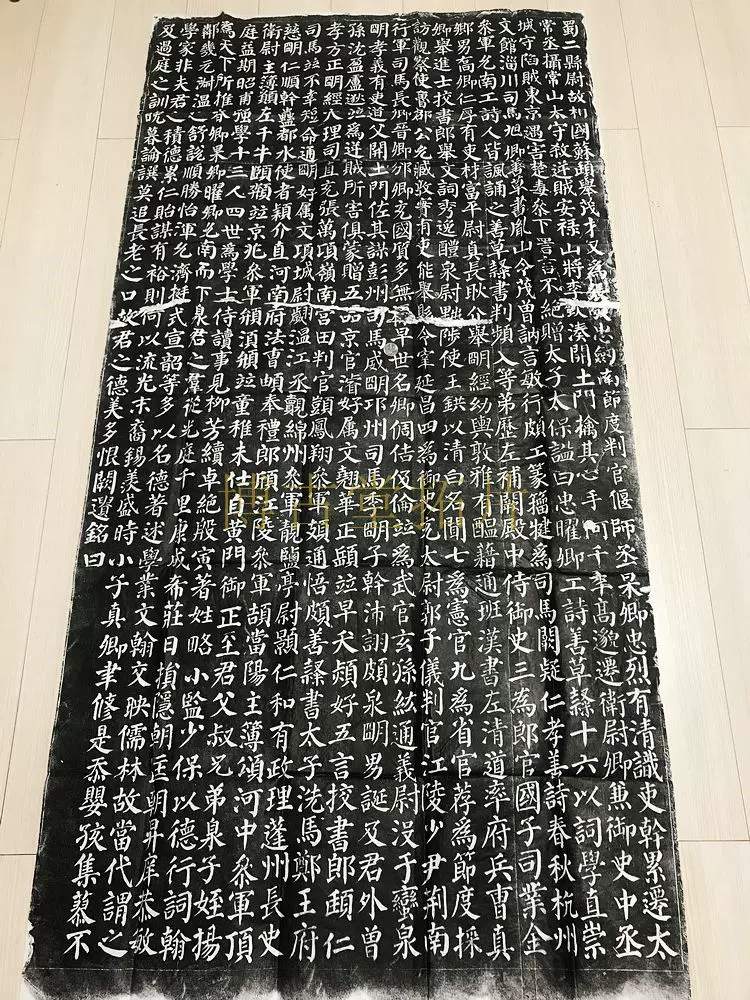 蜀二縣尉故相國蘇頲舉茂才又為忠劍南節度判官偃師丞杲卿忠烈有清識吏幹累遷太
常丞攝常山太守殺逆賊安祿山將李欽湊開土門擒其心手何千年高邈遷衛尉卿兼御史中丞
城守陷賊東京遇害楚毒參下詈言不絕贈太子太保謚曰忠曜卿工詩善草隸十六以詞學直崇
文館淄川司馬旭卿善草書胤山令茂曾訥言敏行頗工篆籀犍為司馬闕疑仁孝善詩春秋杭州
參軍允南工詩人皆諷誦之善草隸書判頻入等第歷左補闕殿中侍御史三為郎官國子司業金
鄉男喬卿仁厚有吏材富平尉真長耿介舉明經幼輿敦雅醞藉通班漢書左清道率府兵曹真
卿舉進士挍書郎舉文詞秀逸醴泉尉黜陟使王鉷以清白名聞七為憲官九為省官荐為節度採
訪觀察使魯郡公允臧敦實有吏能舉縣令宰延昌四為御史充太尉郭子儀判官江陵少尹荊南
行軍司馬長卿晉卿邠卿充國質多無祿早世名卿倜佶伉倫並為武官玄孫紘通義尉沒于蠻泉
明孝義有吏道父開土門佐其謀彭州司馬威明邛州司馬季明子幹沛詡頗泉明男誕及君外曾
孫沈盈盧逖並為逆賊所害俱蒙贈五品京官濬好屬文翹華正頤並早夭熲好五言挍書郎頲仁
孝方正明經大理司直充張萬頃嶺南營田判官顗鳳翔參軍頍通悟頗善隸書太子洗馬鄭王府
司馬並不幸短命通明好屬文項城尉翽溫江丞覿綿州參軍靚鹽亭尉顥仁和有政理蓬州長史
慈明仁順幹蠱都水使者穎介直河南府法曹頔奉禮郎頎江陵參軍頡當陽主簿頌河中參軍頂
衛尉主簿願左千牛頤頹並京兆參軍頯須頒並童稚未仕自黃門御正至君父叔兄弟息子姪揚
庭益期昭甫強學十三人四世為學士侍讀事見柳芳續卓絕殷寅著姓略小監少保以德行詞翰
為天下所推春卿杲卿曜卿允南而下息君之群從光庭千里康成希莊日損隱朝匡朝昇庠恭敏
鄰幾元淑溫之舒說順勝怡渾允濟挺式宣韶等多以名德著述學業文翰交映儒林故當代謂之
學家非夫君之積德累仁貽謀有裕則何以流光末裔錫羨盛時小子真卿聿修是忝嬰孩集蓼不
及過庭之訓晚暮論譔莫追長老之口故君之德美多恨闕遺銘曰
博古堂拓片